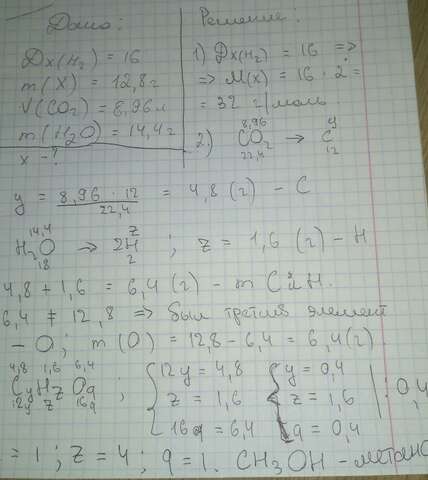 Дано:
Dx(H₂) = 16
m(X) = 12,8г
V(CO₂) = 8,96л
m(H₂O) = 14,4г
x - ?
Решение:
1) Dx(H₂) = 16 =>
=> M(X) = 16 · 2 =
= 32 г/моль
8,96 y
2.) CO₂ → C
22,4 12
y = 8,96 · 12 / 22,4 = 4,8 (г) - C
14,4 z
H₂O → 2H ; z = 1,6 (г) - H
18 2
4,8 + 1,6 = 6,4 (г) - m C и H.
6,4 ≠ 12,8 => был третий элемент
- O; m(O) = 12,8 - 6,4 = 6,4(г)
4,8 1,6 6,4
CyHzOq ; { 12y = 4,8 { y = 0,4
12y z 16q z = 1,6 z = 1,6 | : 0,4
16q = 6,4 q = 0,4
= 1 ; z = 4 ; q = 1. CH₃OH - метано